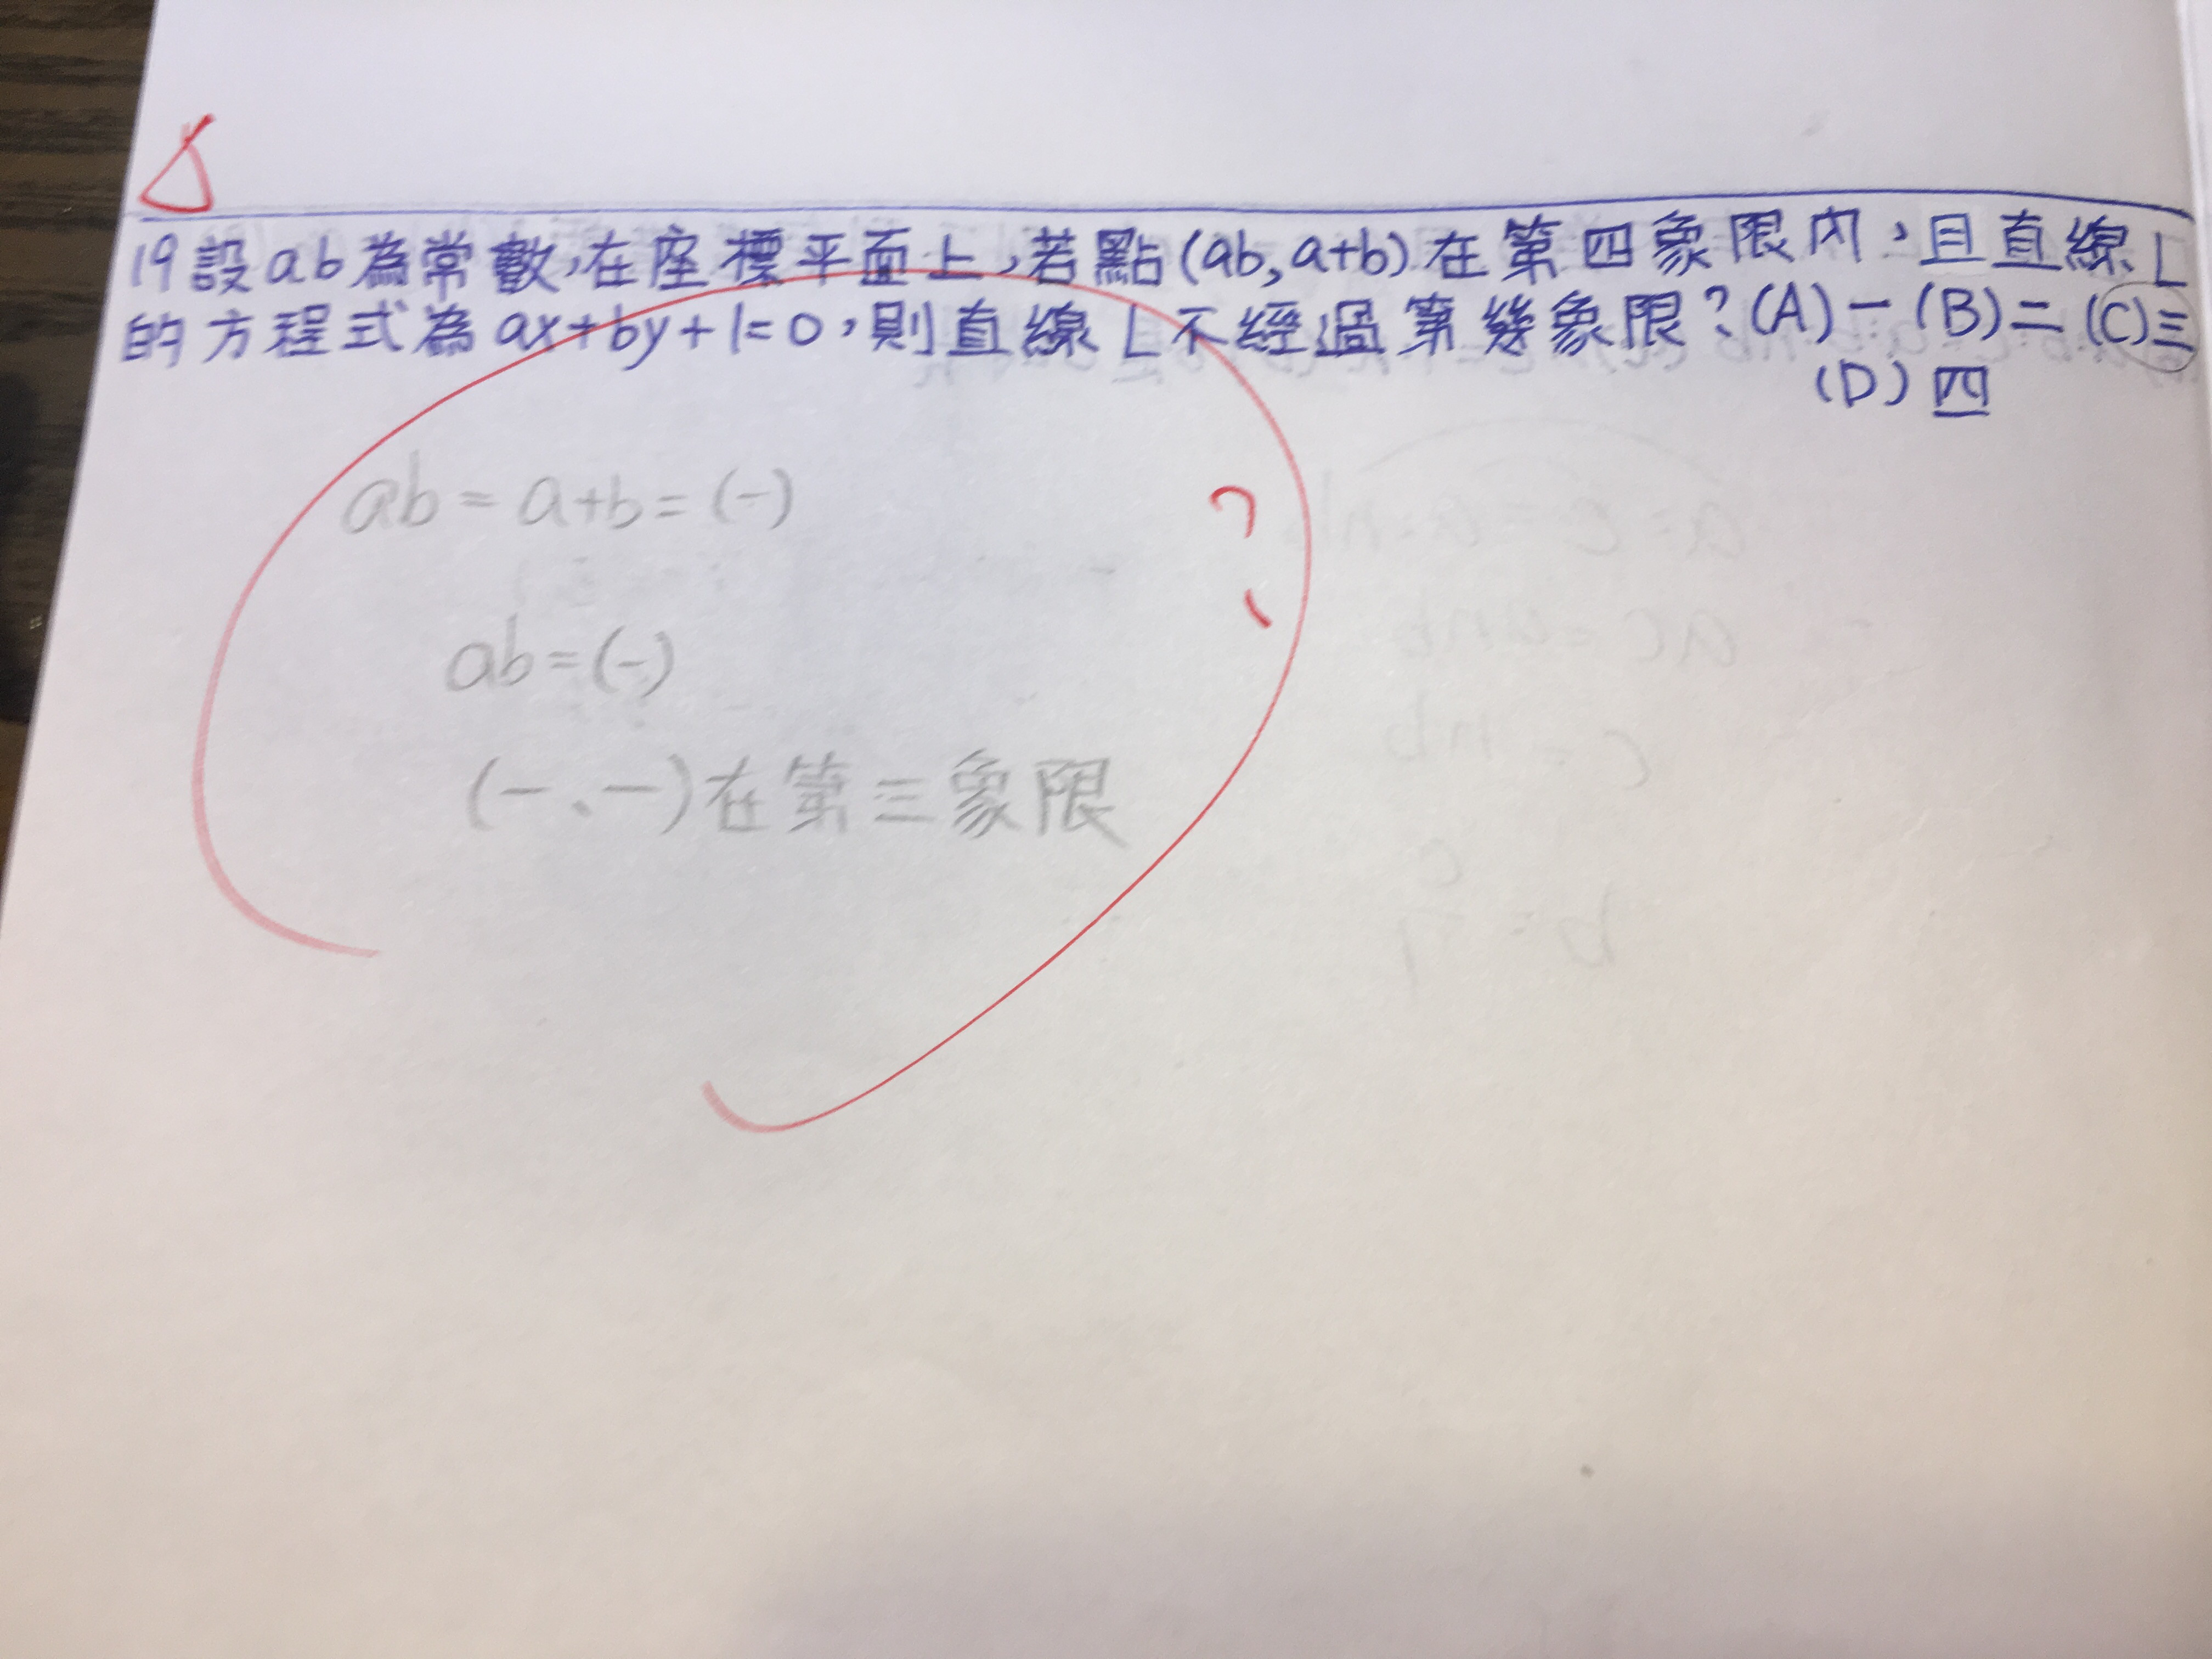 19設ab為常數,在座標平面上,若點(ab,a+b)在第四象限內,且直線L
的方程式為ax+by+1=0,則直線L不經過第幾象限?(A)一(B)二(C)三
(D)四
ab=a+b=(-)
ab=(-)
(一、一)在第三象限
?